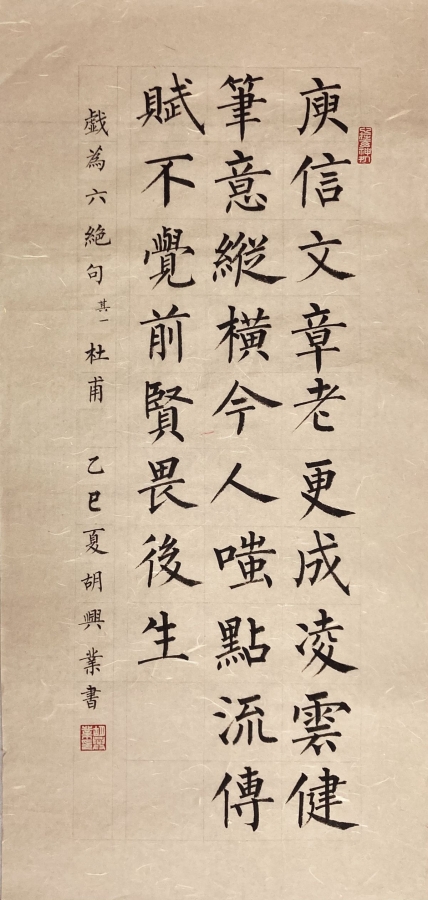 庾信文章老更成凌雲健
筆意縱横今人嗤點流傳
賦不覺前賢畏後生
戯為六絶句其一 杜甫 乙巳夏胡興業書